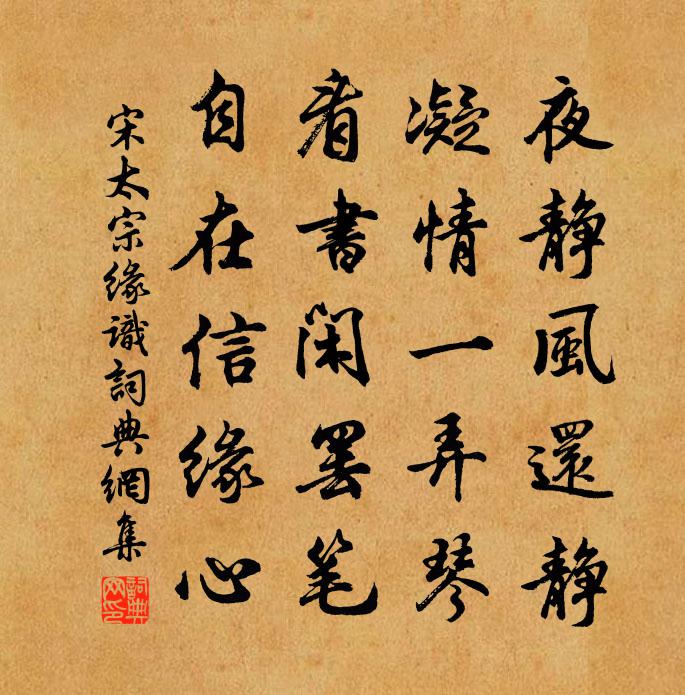 夜静風還静
凝情一弄琴
看書閑罢笔
自在信緣心
宋太宗緣識詞典網集
詞典網印